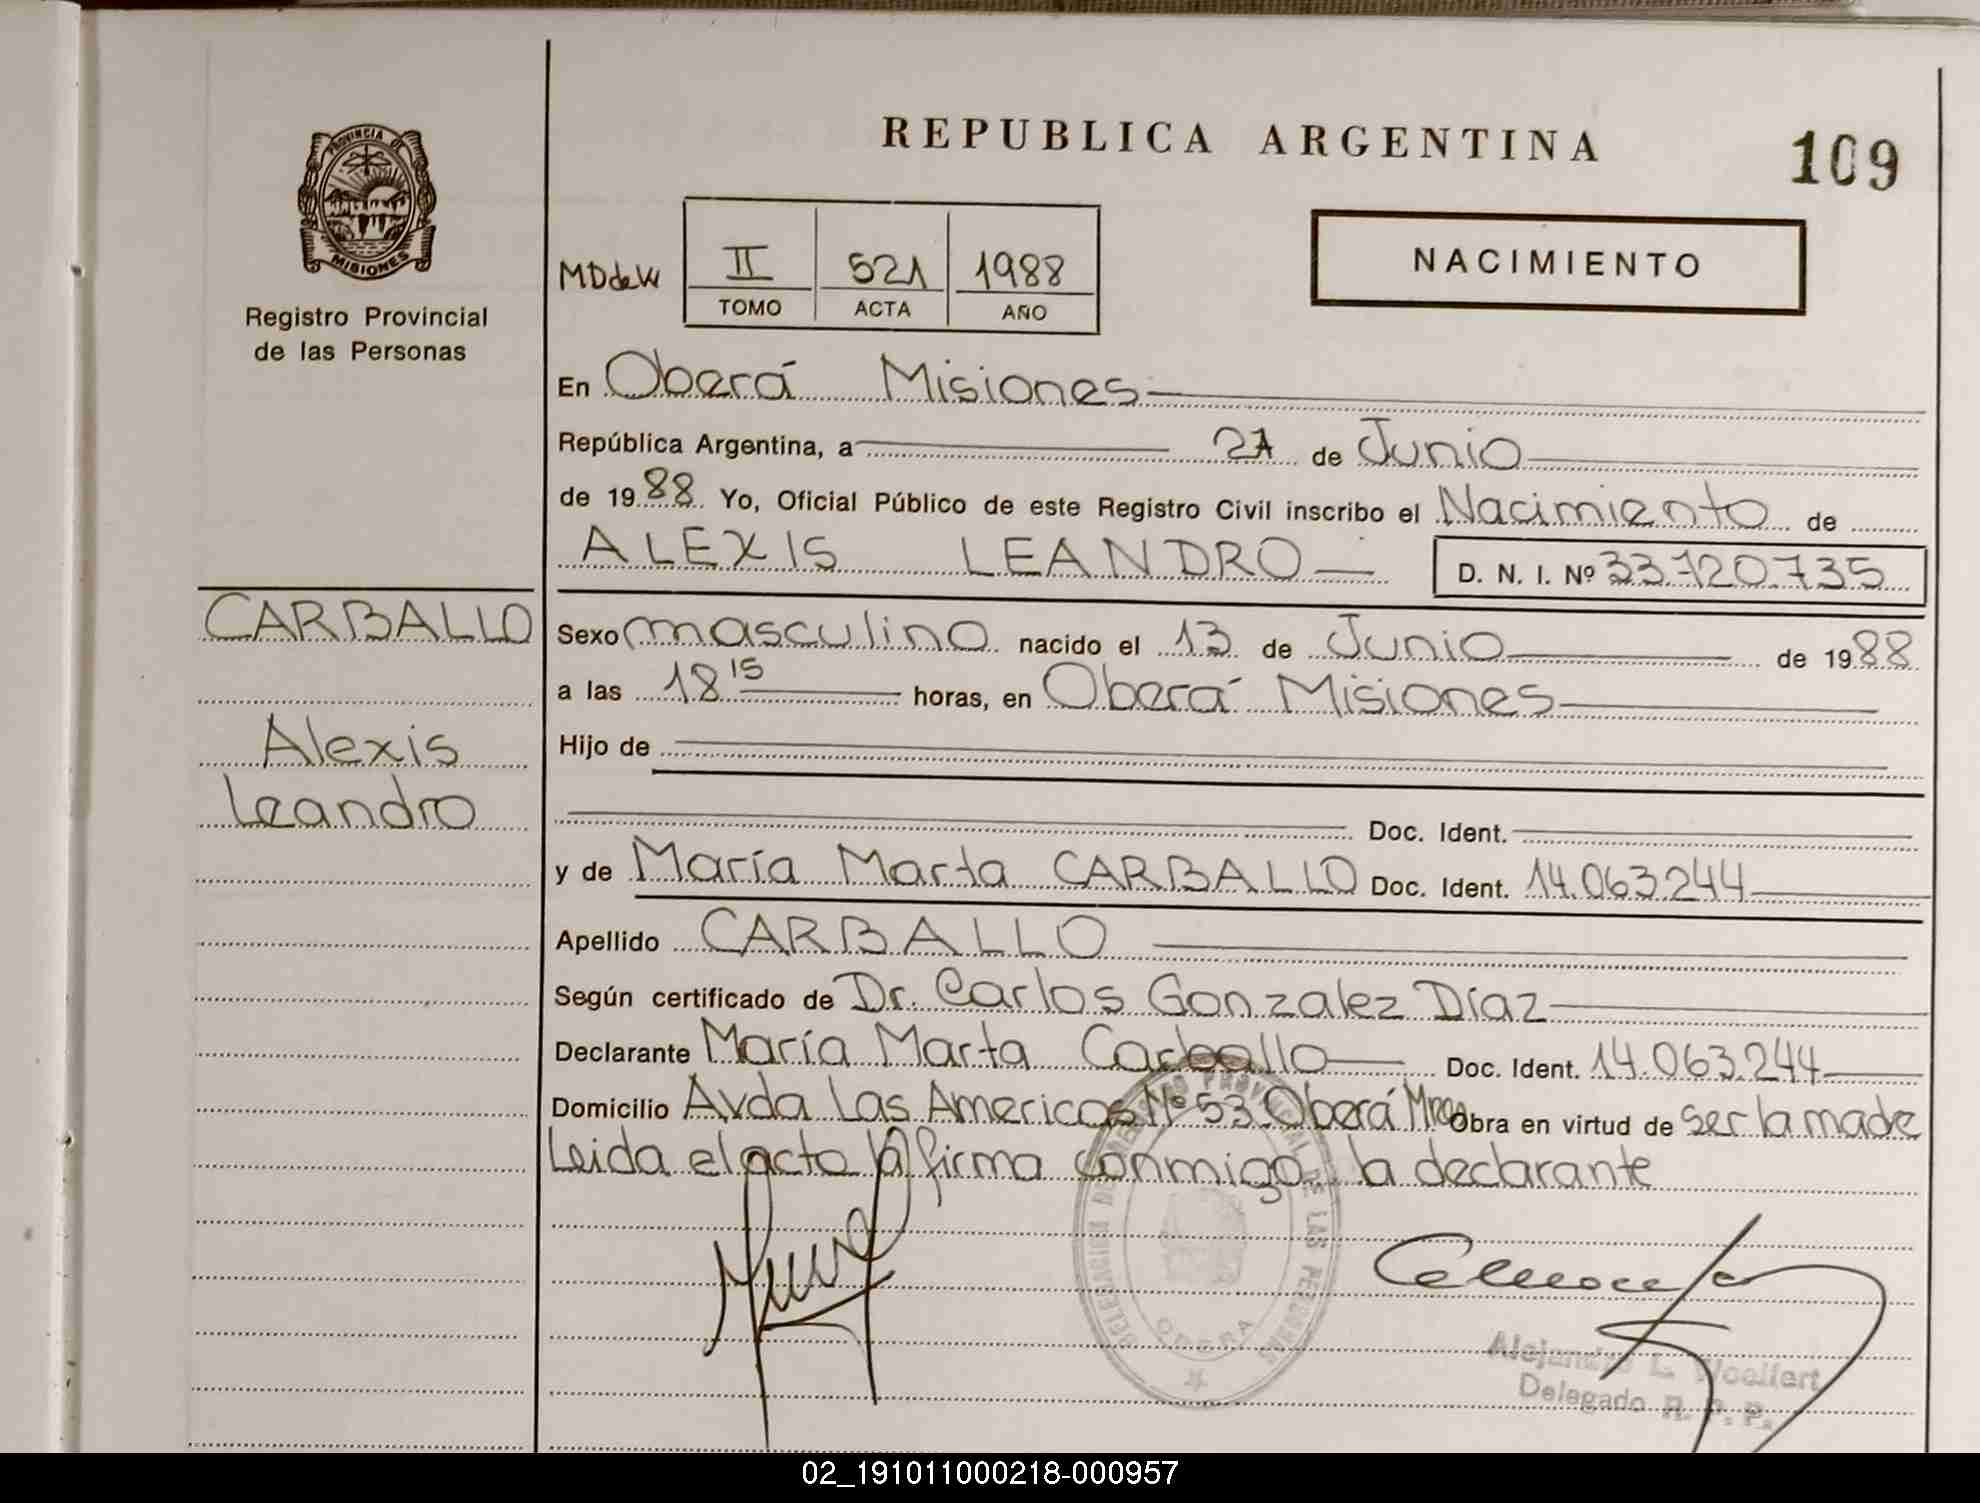 REPUBLICA ARGENTINA
109
PROVINCIA DE
MISIONES
Registro Provincial
de las Personas
MDdeW
II
521
1988
TOMO
ACTA
AÑO
NACIMIENTO
En Oberá Misiones
República Argentina, a 21 de Junio
de 1988 Yo, Oficial Público de este Registro Civil inscribo el Nacimiento de
ALEXIS LEANDRO
D. N. I. Nº 33.120.735
CARBALLO
Alexis
Leandro
Sexo masculino nacido el 13 de Junio de 1988
a las 18 15 horas, en Oberá Misiones
Hijo de
Doc. Ident.
y de María Marta CARBALLO Doc. Ident. 14.063.244
Apellido CARBALLO
Según certificado de Dr. Carlos Gonzalez Díaz
Declarante María Marta Carballo Doc. Ident. 14.063.244
Domicilio Avda Las Americas Nº 53 Oberá Mnes Obra en virtud de ser la madre
Leida el acto la firma conmigo la declarante
DELEGACION DEL REGISTRO PROVINCIAL DE LAS PERSONAS
OBERA
Alejandro L. Woelfert
Delegado R. P. P.
02_191011000218-000957